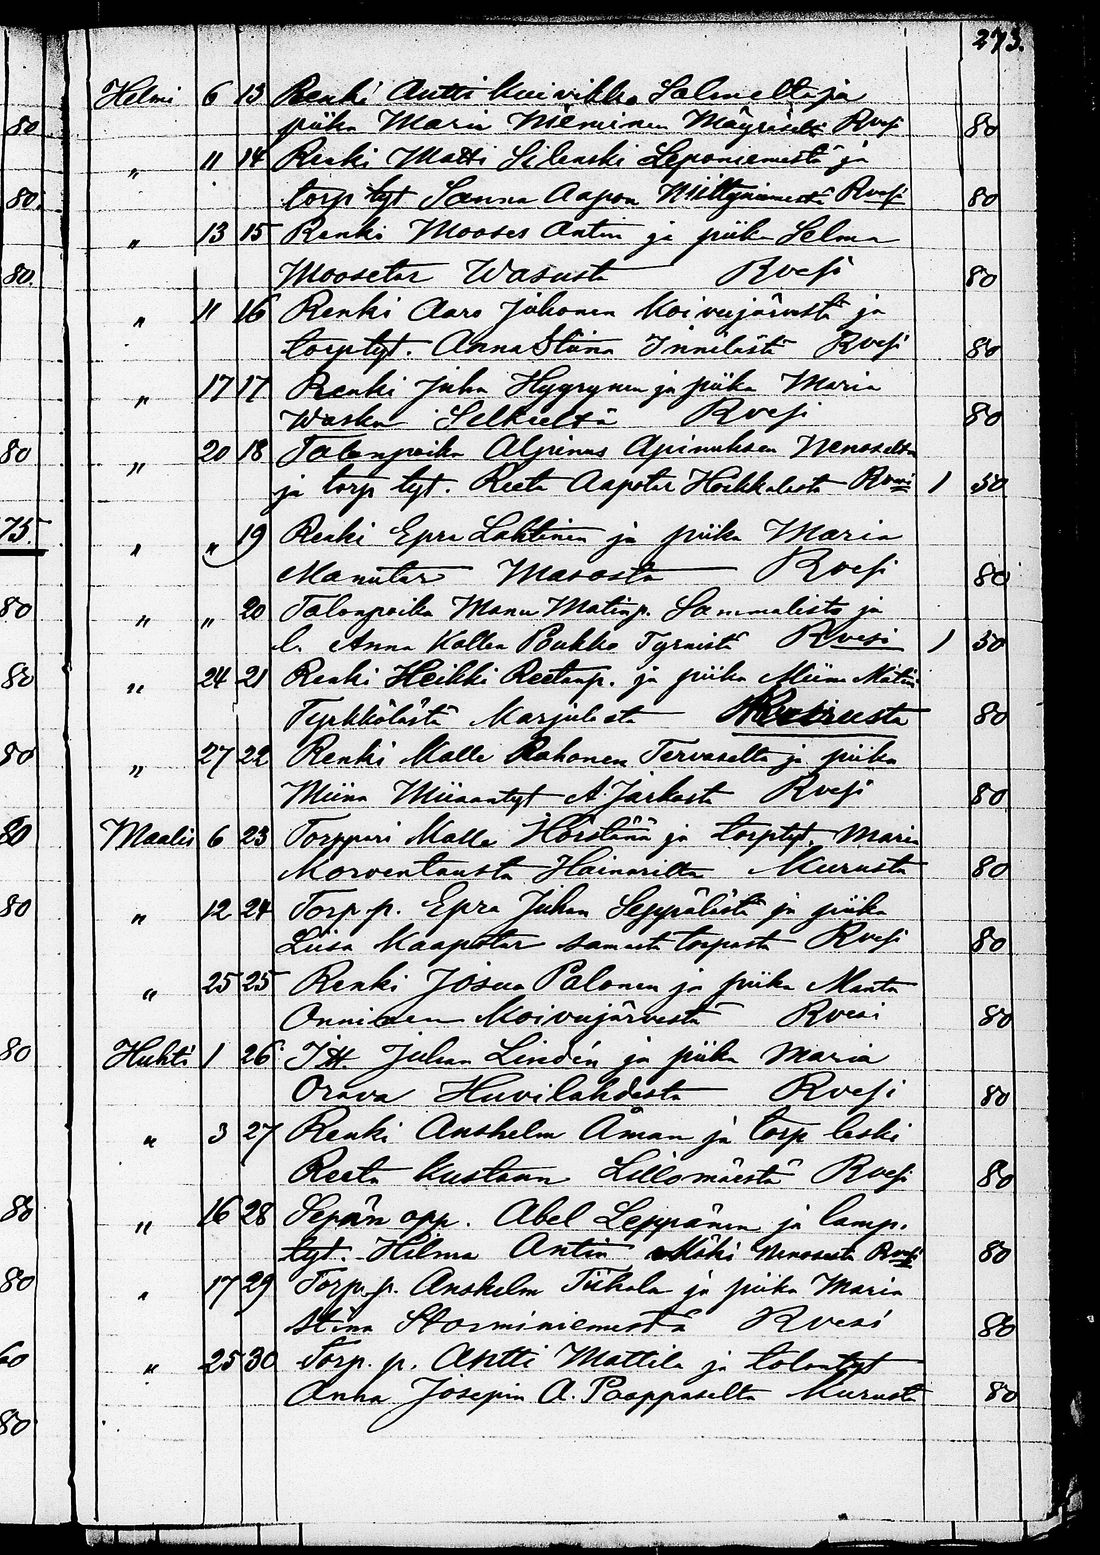 273.
Helmi 6 13 Renki Antti Kuivikko Salmelta ja
80 piika Maria Nieminen Mäyräseltä Rvesi 80
„ 11 14 Renki Matti Silenski Leponiemestä ja
80. torp tyt Sanna Aapon Rvesi 80
„ 13 15 Renki Mooses Antin ja piika Selma
80. Moosetar Wasusta Rvesi 80
„ 11 16 Renki Aaro Juhonen Koivujärvestä ja
torptyt. Anna Stiina Innilästä Rvesi 80
„ 17 17 Renki Juha Hyyrynen ja piika Maria
Wasku Selkieltä Rvesi 80
80 „ 20 18 Talonpoika Alpinus Apinuksen Nenoselta
ja torp tyt. Reeta Aapotar Hoikkalasta Rvesi 1 50
75. „ „ 19 Renki Epra Lahtinen ja piika Maria
Manutar Masosta Rvesi 80
80 „ „ 20 Talonpoika Manu Matinp. Sammalisto ja
l. Anna Kallen Pukko Tyrnistä Rvesi 1 50
80 „ 24 21 Renki Heikki Reetanp. ja piika Miina Matin
Tyrkkölästä Marjulasta 80
80 „ 27 22 Renki Kalle Rahonen Tervaselta ja piika
Miina Miinantyt A. Jarkosta Rvesi 80
80 Maalis 6 23 Torppari Kalle ja torptyt. Maria
Korventausta Hainarilta Kurusta 80
80 „ 12 24 Torp. p. Epra Juhan Seppälästä ja piika
Liisa Kaapotar samasta torpasta Rvesi 80
„ 25 25 Renki Josua Palonen ja piika Manta
Onninen Koivujärvestä Rvesi 80
80 Huhti 1 26 Itt. Juhan Lindén ja piika Maria
Orava Huvilahdesta Rvesi 80
„ 3 27 Renki Anshelm Åman ja torp leski
Reeta Kustaan Lillomäestä Rvesi 80
80 „ 16 28 Sepän opp. Abel Leppänen ja lamp.
tyt. Hilma Antin Mäki Nenosesta Rvesi 80
80 „ 17 29 Torp. p. Anshelm Tiikala ja piika Maria
Stina Storminiemestä Rvesi 80
60 „ 25 30 Torp. p. Antti Mattila ja talontyt
Anna Josepin A. Poappaselta Kurusta 80
80